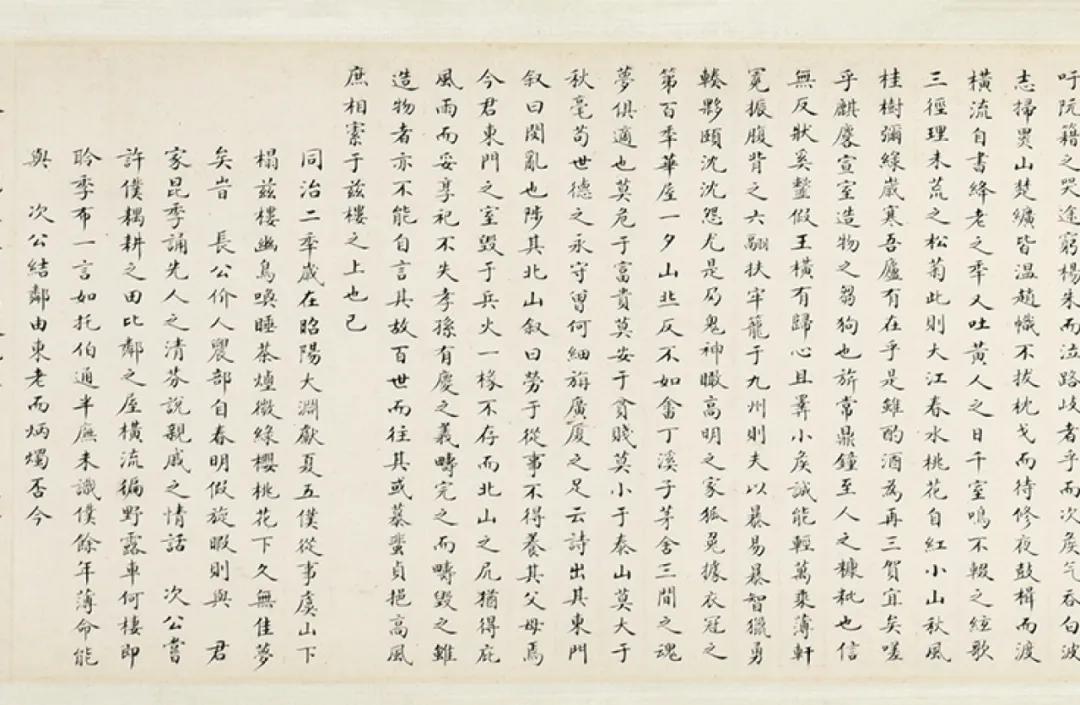 吁阮籍之哭途窮楊朱而泣路歧者乎而次矦气吞白波
志掃黑山楚纊皆温趙幟不拔枕戈而待修夜鼓楫而渡
橫流自書絳老之秊又吐黃人之日千室鳴不輟之絃歌
三徑理未荒之松菊此則大江春水桃花自紅小山秋風
桂樹彌緑歲寒吾廬有在乎是雖酌酒為再三賀宜矣嗟
乎麒麐宣室造物之芻狗也旂常鼎鐘至人之糠秕也信
無反狀奚鏨假王橫有歸心且羃小矦誠能輕萬乘薄軒
冕振腹背之六翮扶牢籠于九州則夫以暴易暴智獵勇
轃夥頤沈沈怨尤是局鬼神瞰高明之家狐兔據衣冠之
第百秊華屋一夕山北反不如畬丁溪子茅舍三間之魂
夢俱適也莫危于富貴莫安于貧賤莫小于泰山莫大于
秋毫苟世德之永守曾何細旃廣厦之足云詩出其東門
叙曰閔亂也陟其北山叙曰勞于從事不得養其父母焉
今君東門之室毀于兵火一椽不存而北山之凥猶得庇
風雨而妥享祀不失孝孫有慶之義疇完之而疇毀之雖
造物者亦不能自言其故百世而往其或慕蜚貞挹高風
庶相索于兹樓之上也已
同治二秊歲在昭陽大淵獻夏五僕從事虞山下
榻兹樓幽鳥喚睡茶爐微緑櫻桃花下久無佳夢
矣昔　長公价人農部自春明假旋暇則與　君
家昆季誦先人之清芬說親戚之情話　次公嘗
許僕耦耕之田比鄰之庢橫流徧野露車何棲即
聆季布一言如托伯通半廡未識僕餘年薄命能
與　次公結鄰由東老而炳燭否今